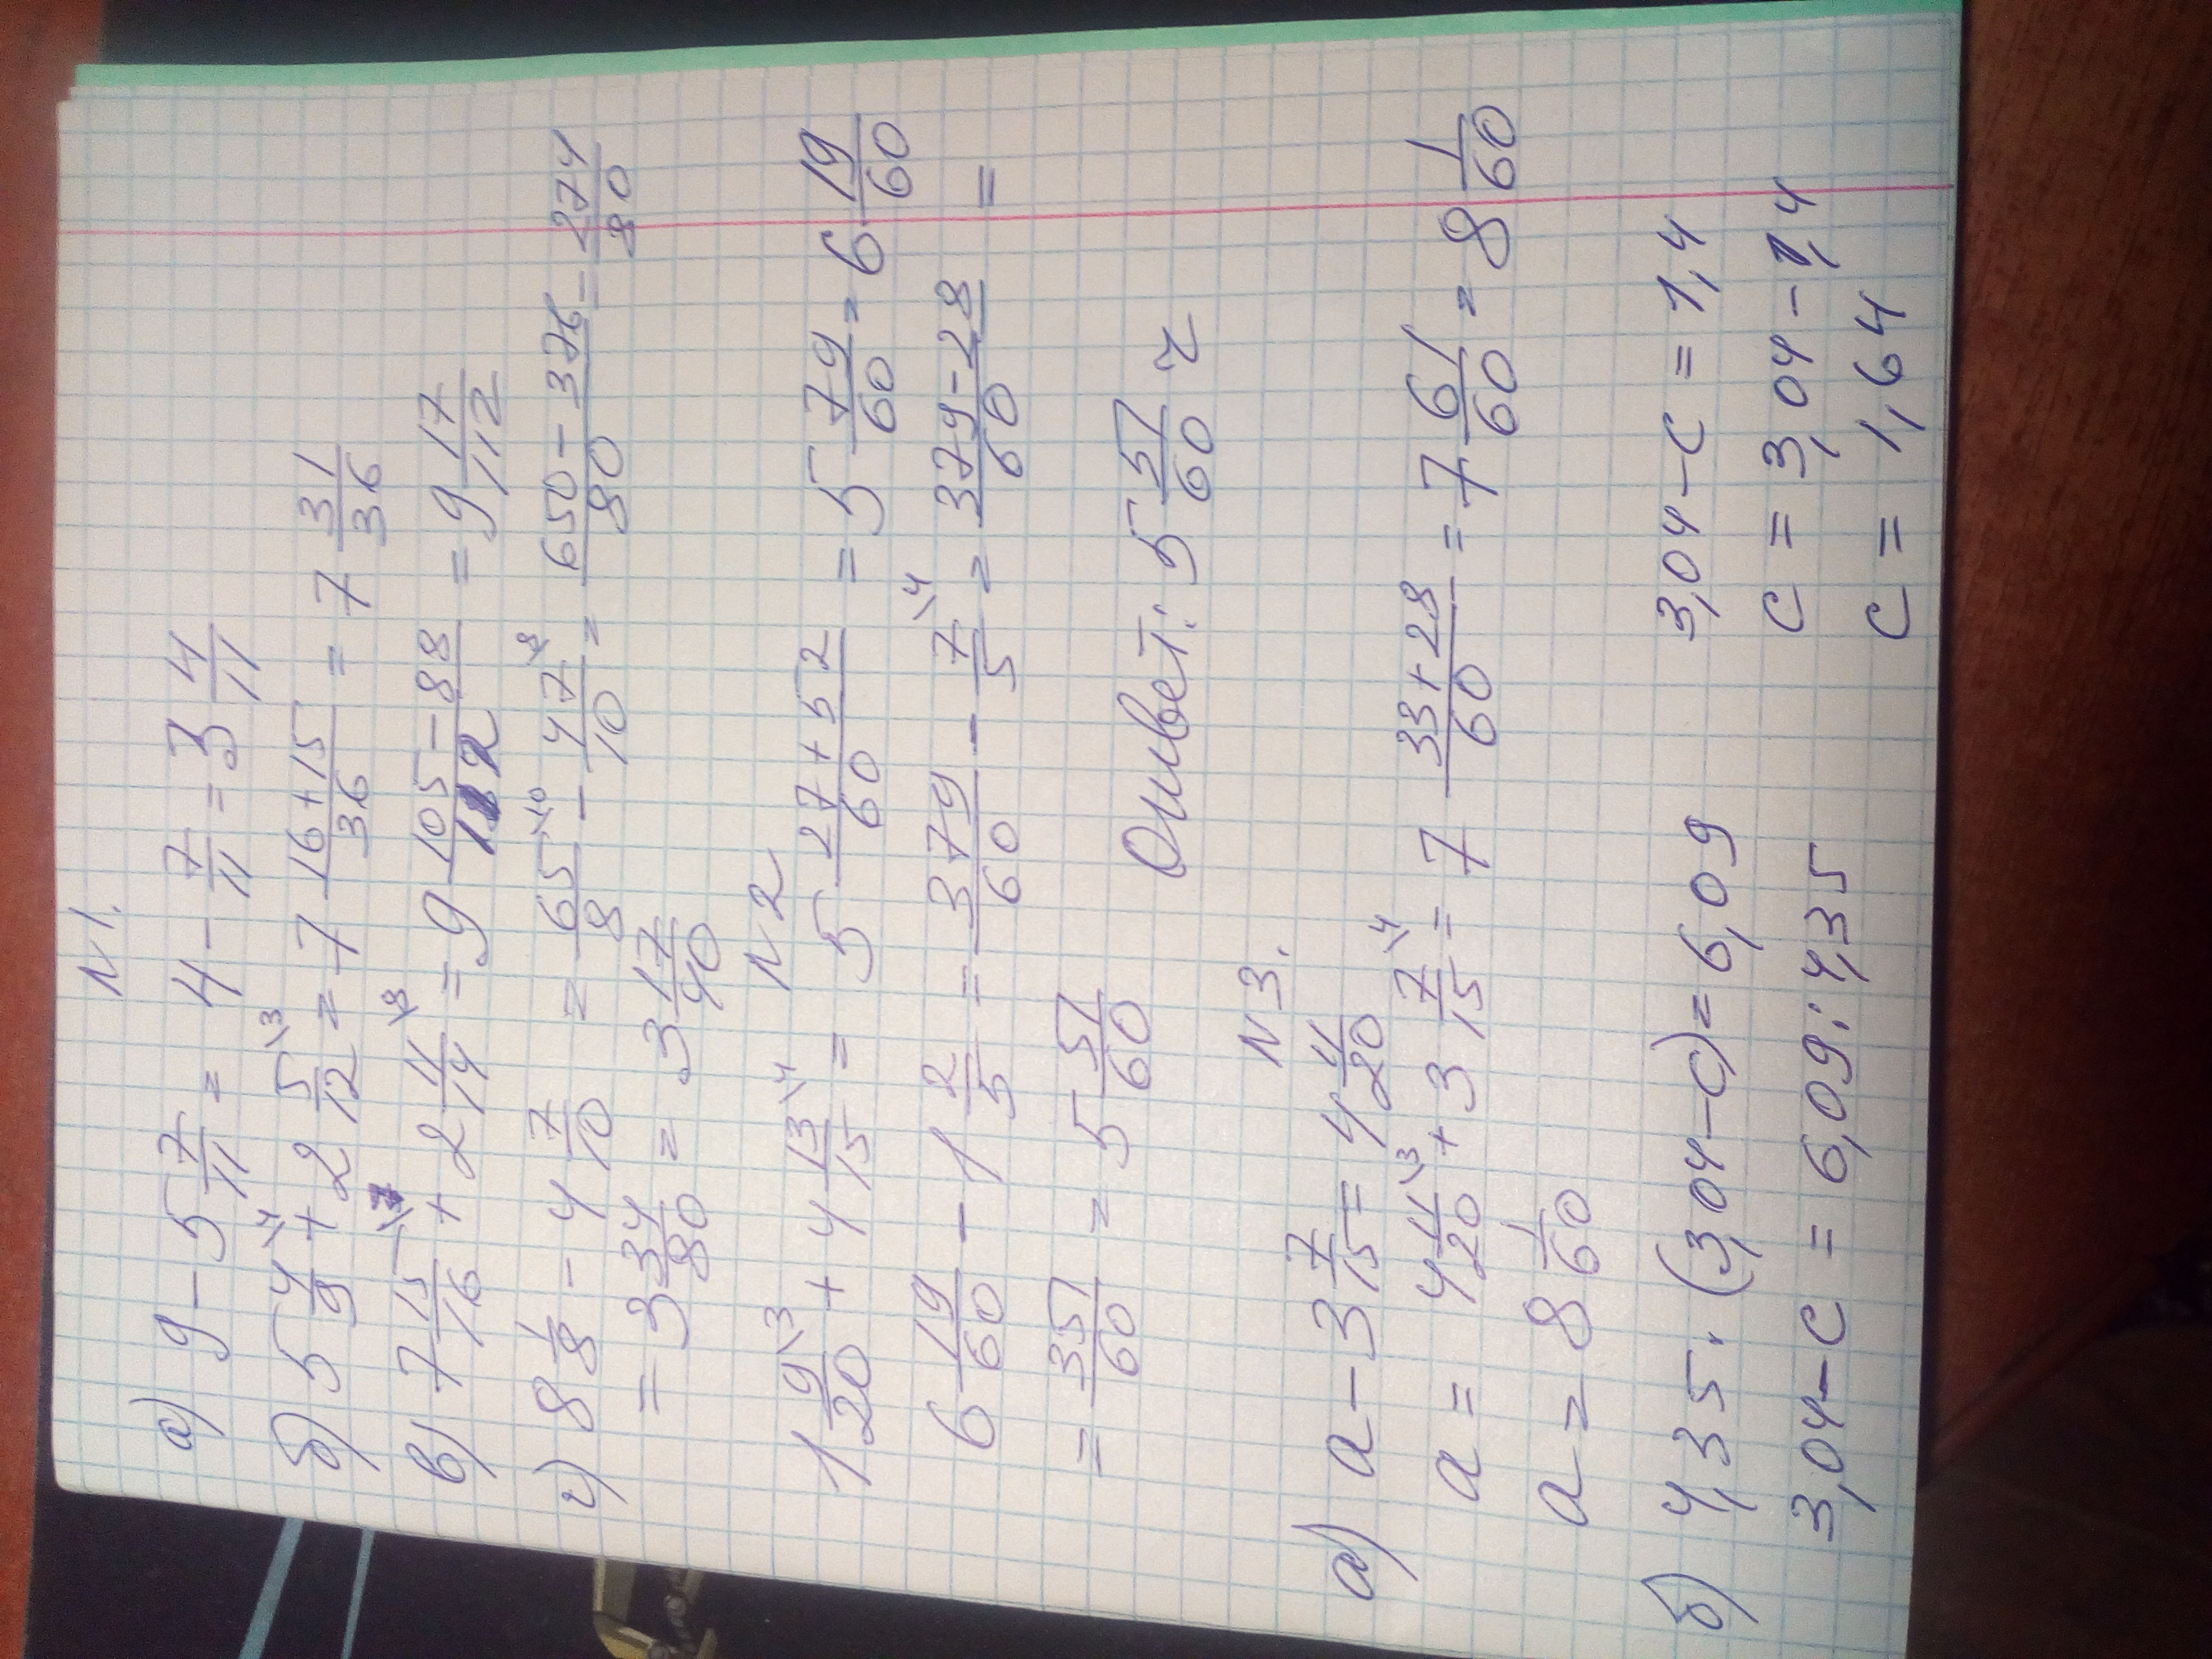 N1.
а) 9 - 5 7/11 = 4 - 7/11 = 3 4/11
б) 5 4/9 \4 + 2 5/12 \3 = 7 16+15/36 = 7 31/36
в) 7 15/16 \7 + 2 11/14 \8 = 9 105-88/112 = 9 17/112
г) 8 1/8 - 4 7/10 = 65/8 \10 - 47/10 \8 = 650-376/80 = 274/80
= 3 34/80 = 3 17/40
N2
1 9/20 \3 + 4 13/15 \4 = 5 27+52/60 = 5 79/60 = 6 19/60
6 19/60 - 1 2/5 = 379/60 - 7/5 \4 = 379-28/60 =
= 351/60 = 5 51/60 Ответ: 5 51/60 ч
N3.
а) a - 3 7/15 = 4 11/20
a = 4 11/20 \3 + 3 7/15 \4 = 7 33+28/60 = 7 61/60 = 8 1/60
a = 8 1/60
б) 4,35 · (3,04-c) = 6,09
3,04-c = 6,09 : 4,35
3,04-c = 1,4
c = 3,04-1,4
c = 1,64